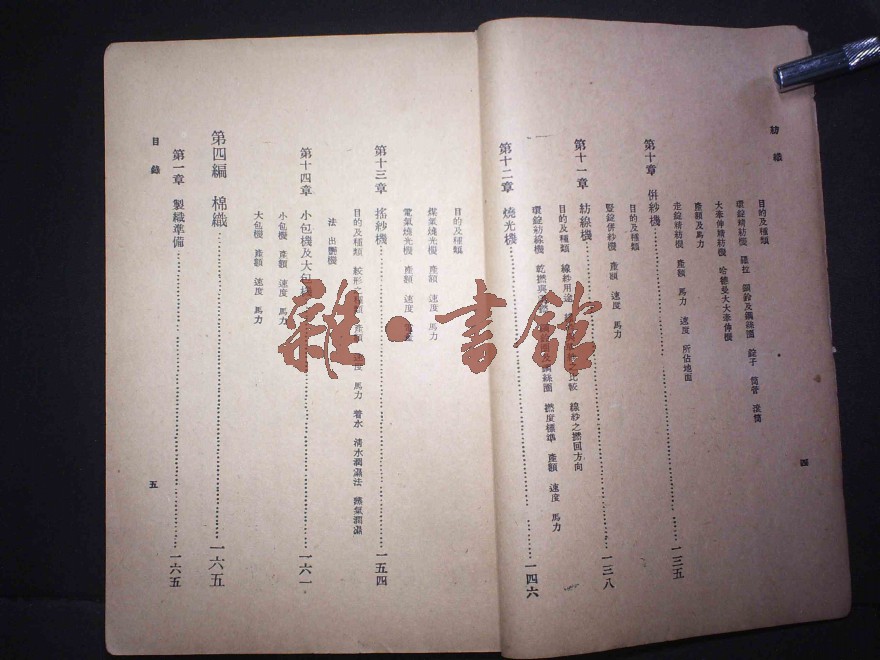 紡織
目的及種類
環錠精紡機 羅拉 鋼鈴及鋼絲圈 錠子 筒管 滾筒
大牽伸精紡機
產額及馬力
走錠精紡機 產額 馬力 速度 所佔地面
第十章 併紗機 一三五
目的及種類
豎錠併紗機 產額 速度 馬力
第十一章 紡線機 一三八
目的及種類 線紗用途 比較 線紗之撚回方向
環錠紡線機 乾撚與 鋼絲圈 撚度標準 產額 速度 馬力
第十二章 燒光機 一四六
四
目的及種類
煤氣燒光機 產額 速度 馬力
電氣燒光機 產額 速度
第十三章 搖紗機 一五四
目的及種類 絞形之種類 產額 速度 馬力 着水 清水潤濕法 蒸氣潤濕
法 出豔機
第十四章 小包機及大包機 一六一
小包機 產額 速度 馬力
大包機 產額 速度 馬力
第四編 棉織 一六五
第一章 製織準備 一六五
目錄
五
雜·書館